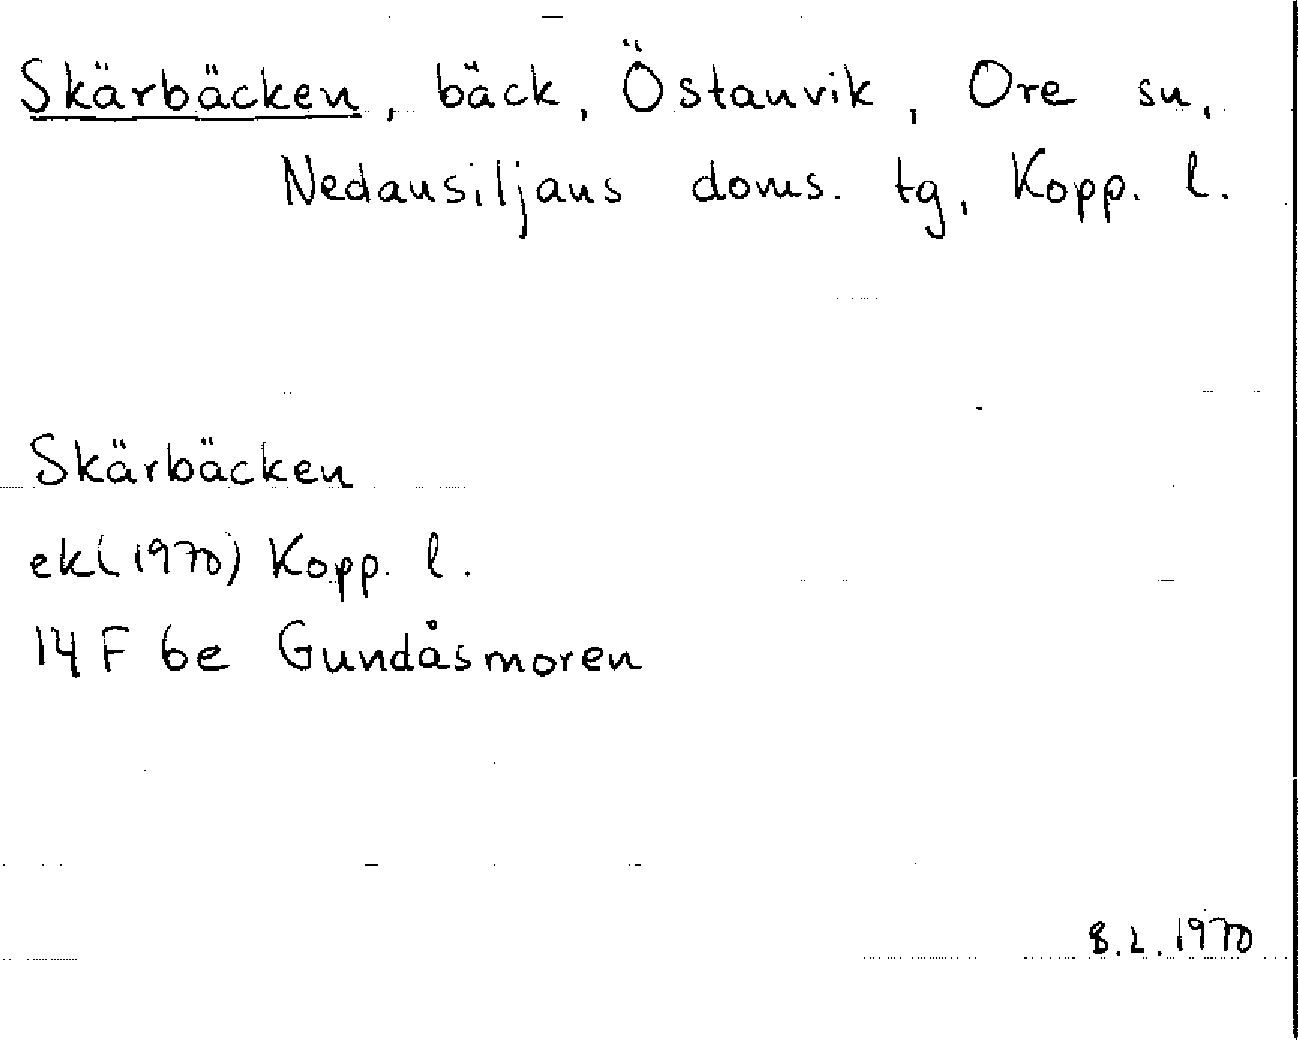 Skärbäcken, bäck, Östanvik, Ore sn,
Nedansiljans doms. tg, Kopp. l.
Skärbäcken
ek(1970) Kopp. l.
14 F 6e Gundåsmoren
8.2.1970